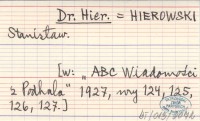 Dr. Hier. = HIEROWSKI
Stanisław.
[w: „ABC Wiadomości
z Podhala" 1927, nry 124, 125,
126, 127.]